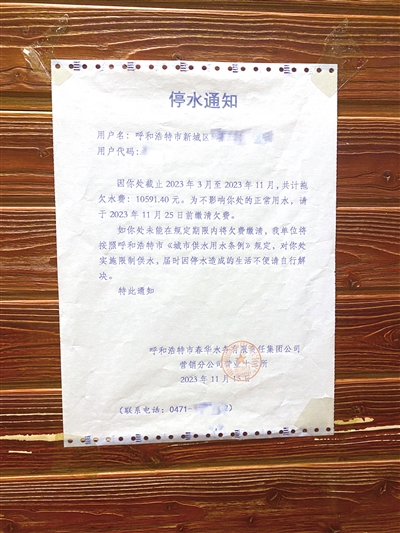 停水通知
用户名：呼和浩特市新城区
用户代码：
因你处截止 2023 年 3 月至 2023 年 11 月，共计拖
欠水费：10591.40 元。为不影响你处的正常用水，请
于 2023 年 11 月 25 日前缴清欠费。
如你处未能在规定期限内将欠费缴清，我单位将
按照呼和浩特市《城市供水用水条例》规定，对你处
实施限制供水，届时因停水造成的生活不便请自行解
决。
特此通知
呼和浩特市春华水务有限责任集团公司
营销分公司营业十三所
2023 年 11 月 15 日
（联系电话：0471-